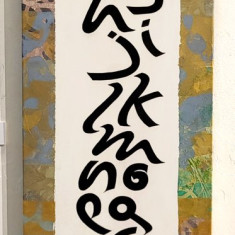 h i
j k
l m
n o
p q